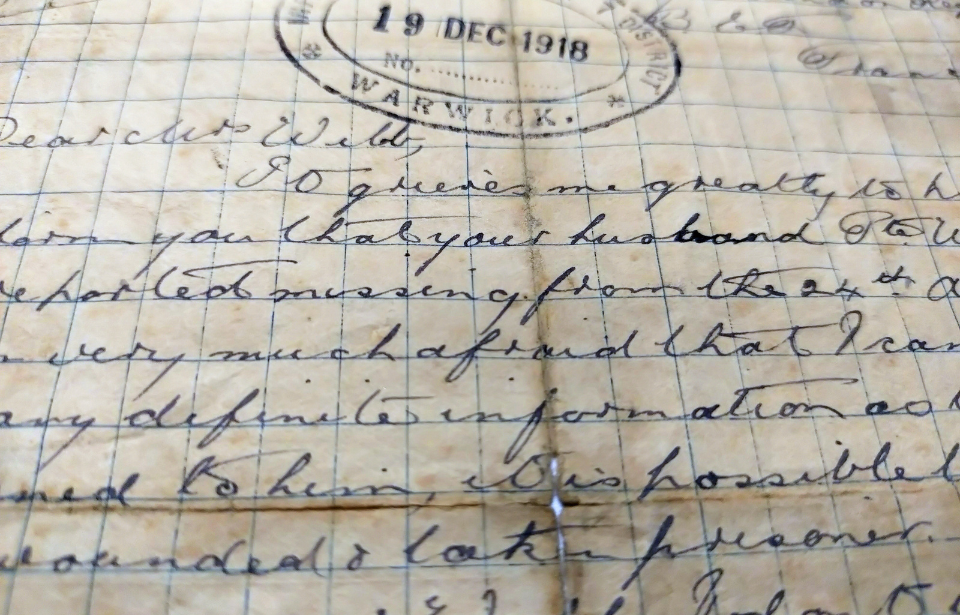 19 DEC 1918
DISTRICT
No.
WARWICK.
B. E. F.
France
Dear Mrs Webb,
It grieves me greatly to h
form you that your husband Pte W
reported missing from the 24th
very much afraid that I can
any definite information as
ned to him, it is possible
wounded & taken prisoner.